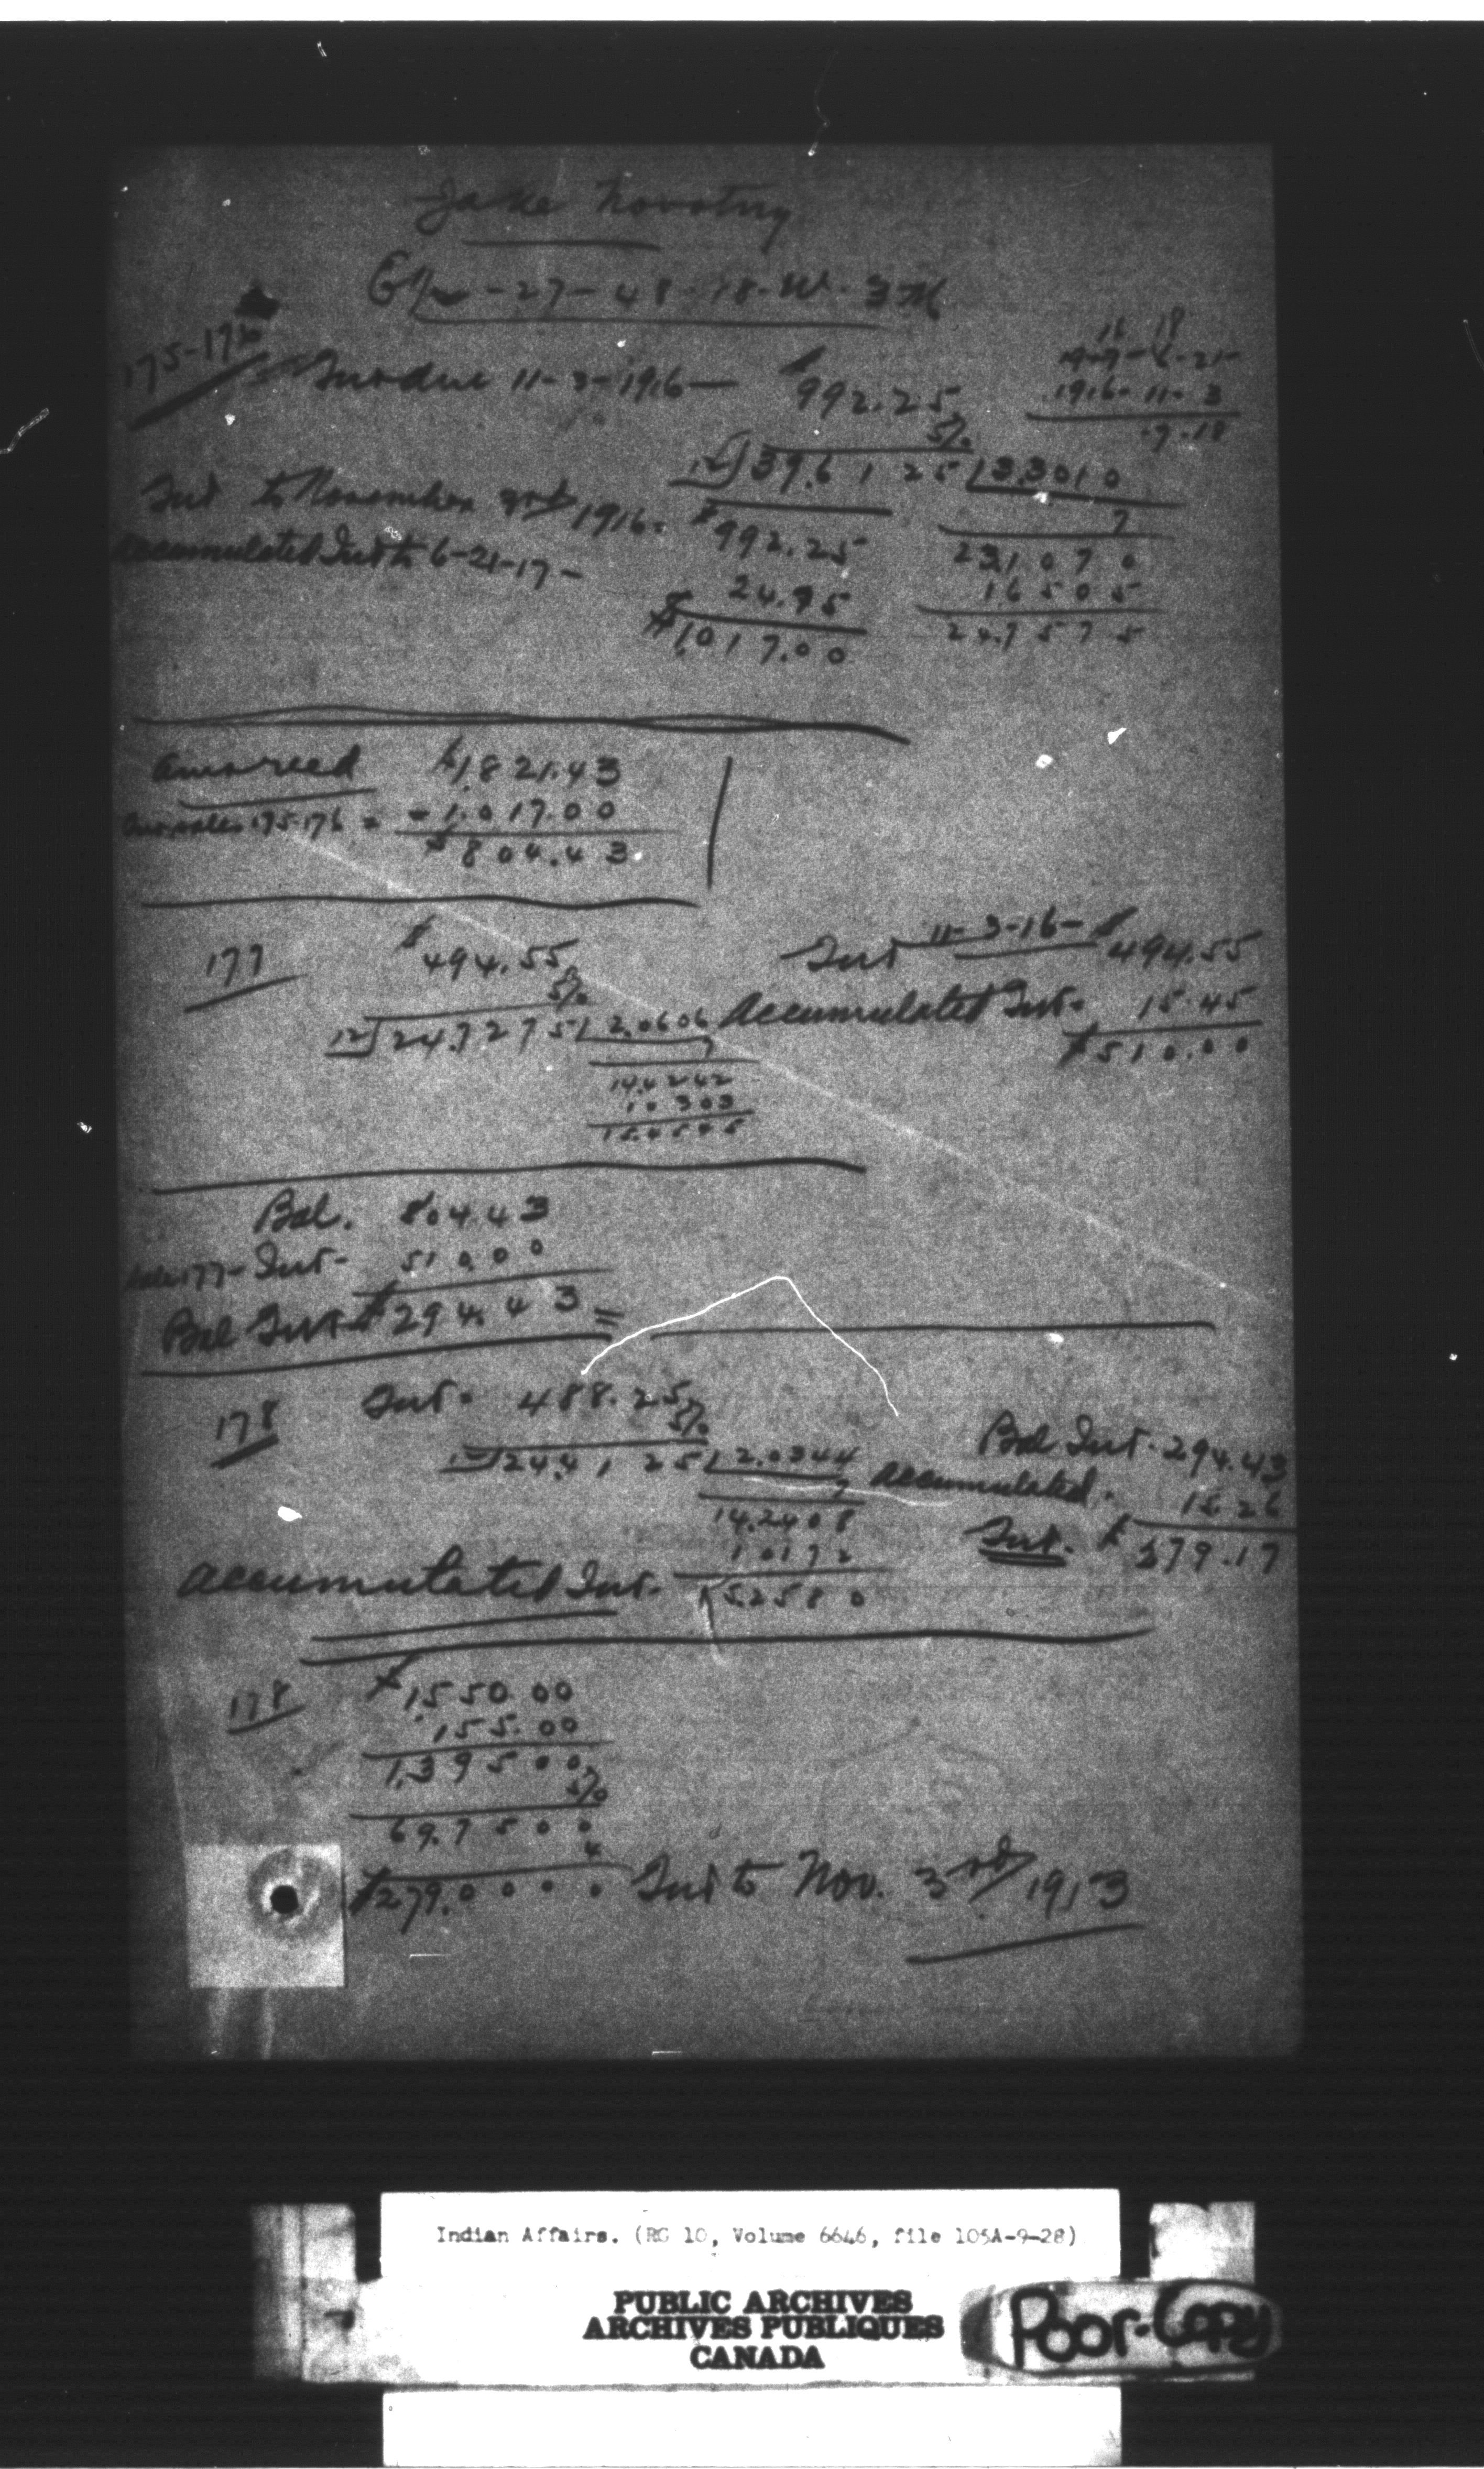 Jake Novotny
E½-27-48-18-W-3M
16 18
1917-6-21-
1916-11-3
7-18
175-176
Int due 11-3-1916— $992.25
5%
12)39.6125(3.3010
7
231070
16505
247575
Int to November 3rd 1916. $992.25
Accumulated Int to 6-21-17- 24.75
$1,017.00
Am't rec'd $1,821.43
Am. sales 175-176 = -1,017.00
$804.43
177
$494.55
5%
12)24.7275(2.0606
7
14.4242
1.0303
15.4545
Int 11-3-16- $494.55
Accumulated Int. 15.45
$510.00
Bal. 804.43
Sale 177- Int- 510.00
Bal Int $294.43=
178
Int. 488.25
5%
12)24.4125(2.0344
7
14.2408
1.0172
Accumulated Int. 15.2580
Bal Int. 294.43
Accumulated. 15.26
Int. $279.17
178
$1,550.00
155.00
1,395.00
5%
69.7500
4
$279.0000 Int to Nov. 3rd 1913
Indian Affairs. (RG 10, Volume 6646, file 105A-9-28)
PUBLIC ARCHIVES
ARCHIVES PUBLIQUES
CANADA
Poor-Copy